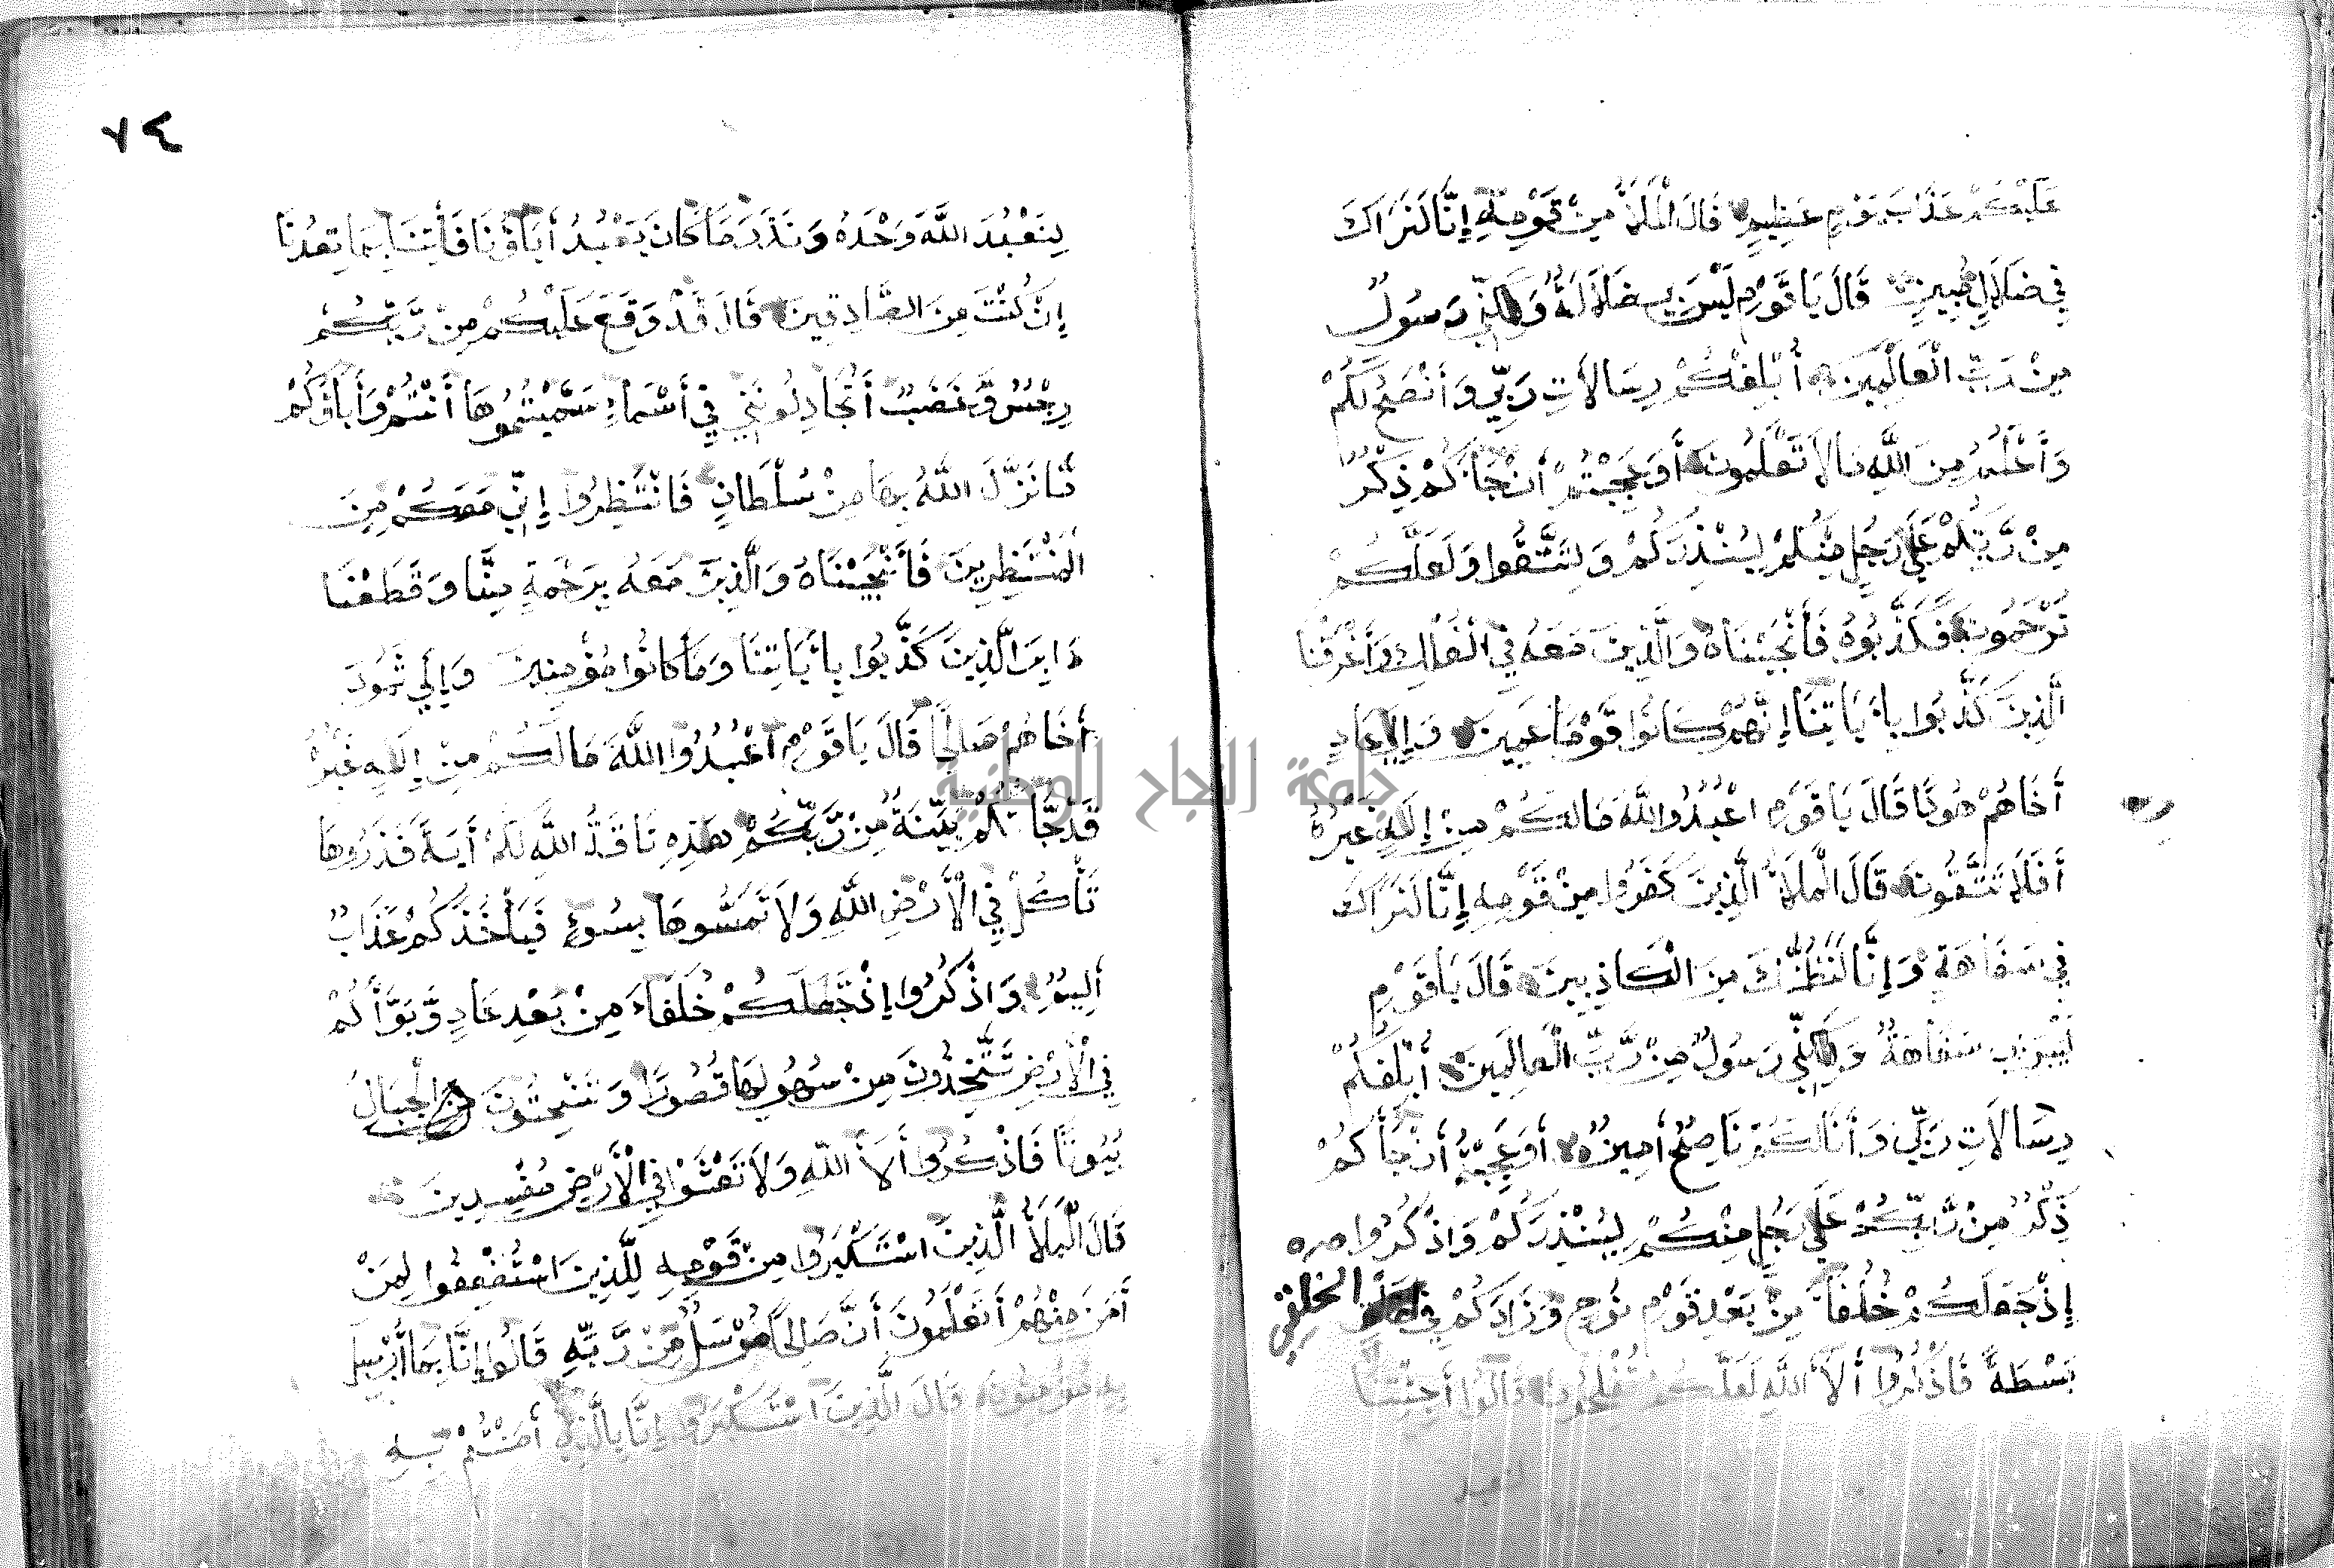 عَلَيْكُمْ عَذَابَ يَوْمٍ عَظِيمٍ قَالَ الْمَلَأُ مِنْ قَوْمِهِ إِنَّا لَنَرَاكَ
فِي ضَلَالٍ مُبِينٍ قَالَ يَا قَوْمِ لَيْسَ بِي ضَلَالَةٌ وَلَكِنِّي رَسُولٌ
مِنْ رَبِّ الْعَالَمِينَ أُبَلِّغُكُمْ رِسَالَاتِ رَبِّي وَأَنْصَحُ لَكُمْ
وَأَعْلَمُ مِنَ اللَّهِ مَا لَا تَعْلَمُونَ أَوَعَجِبْتُمْ أَنْ جَاَكُمْ ذِكْرٌ
مِنْ رَّبِّكُمْ عَلَى رَجُلٍ مِّنْكُمْ لِيُنْذِرَكُمْ وَلِتَتَّقُوا وَلَعَلَّكُمْ
تُرْحَمُونَ فَكَذَّبُوهُ فَأَنْجَيْنَاهُ وَالَّذِينَ مَعَهُ فِي الْفُلْكِ وَأَغْرَقْنَا
الَّذِينَ كَذَّبُوا بِأَيَاتِنَا إِنَّهُمْ كَانُوا قَوْمًا عَمِينَ وَإِلَى عَادٍ
أَخَاهُمْ هُودًا قَالَ يَا قَوْمِ اعْبُدُوا اللَّهَ مَا لَكُمْ مِنْ إِلَهٍ غَيْرُهُ
أَفَلَا تَتَّقُونَ قَالَ الْمَلَأُ الَّذِينَ كَفَرُوا مِنْ قَوْمِهِ إِنَّا لَنَرَاكَ
فِي سَفَاهَةٍ وَإِنَّا لَنَظُنُّكَ مِنَ الْكَاذِبِينَ قَالَ يَا قَوْمِ
لَيْسَ بِي سَفَاهَةٌ وَلَكِنِّي رَسُولٌ مِنْ رَّبِّ الْعَالَمِينَ أُبَلِّغُكُمْ
رِسَالَاتِ رَبِّي وَأَنَا لَكُمْ نَاصِحٌ أَمِينٌ أَوَعَجِبْتُمْ أَنْ جَأَكُمْ
ذِكْرٌ مِنْ رَّبِّكُمْ عَلَى رَجُلٍ مِنْكُمْ لِيُنْذِرَكُمْ وَاذْكُرُوا
إِذْ جَعَلَكُمْ خُلَفَاَ مِنْ بَعْدِ قَوْمِ نُوحٍ وَزَادَكُمْ فِي الخلق
بَسْطَةً فَاذْكُرُوا أَلَاَ اللَّهِ لَعَلَّكُمْ تُفْلِحُونَ قَالُوا أَجِئْتَنَا
٧٤
لِنَعْبُدَ اللَّهَ وَحْدَهُ وَنَذَرَ مَا كَانَ يَعْبُدُ أَبَاؤُنَا فَأْتِنَا بِمَا تَعِدُنَا
إِنْ كُنْتَ مِنَ الصَّادِقِينَ قَالَ قَدْ وَقَعَ عَلَيْكُمْ مِنْ رَّبِّكُمْ
رِجْسٌ وَّغَضَبٌ أَتُجَادِلُونَنِي فِي أَسْمَاءٍ سَمَّيْتُمُوهَا أَنْتُمْ وَأَبَاؤُكُمْ
مَّا نَزَّلَ اللَّهُ بِهَا مِنْ سُلْطَانٍ فَانْتَظِرُوا إِنِّي مَعَكُمْ مِنَ
الْمُنْتَظِرِينَ فَأَنْجَيْنَاهُ وَالَّذِينَ مَعَهُ بِرَحْمَةٍ مِنَّا وَقَطَعْنَا
دَابِرَ الَّذِينَ كَذَّبُوا بِأَيَاتِنَا وَمَا كَانُوا مُؤْمِنِينَ وَإِلَى ثَمُودَ
أَخَاهُمْ صَالِحًا قَالَ يَا قَوْمِ اعْبُدُوا اللَّهَ مَا لَكُمْ مِنْ إِلَهٍ غَيْرُهُ
قَدْ جَّاَتْكُمْ بَيِّنَةٌ مِنْ رَّبِّكُمْ هَذِهِ نَاقَةُ اللَّهِ لَكُمْ أَيَةً فَذَرُوهَا
تَأْكُلْ فِي الْأَرْضِ اللَّهِ وَلَا تَمَسُّوهَا بِسُوءٍ فَيَأْخُذَكُمْ عَذَابٌ
أَلِيمٌ وَاذْكُرُوا إِذْ جَعَلَكُمْ خُلَفَاءَ مِنْ بَعْدِ عَادٍ وَّبَوَّأَكُمْ
فِي الْأَرْضِ تَتَّخِذُونَ مِنْ سُهُولِهَا قُصُورًا وَتَنْحِتُونَ مِنَ الْجِبَالَ
بُيُوتًا فَاذْكُرُوا أَلَاَ اللَّهِ وَلَا تَعْثَوْا فِي الْأَرْضِ مُفْسِدِينَ
قَالَ الْمَلَأُ الَّذِينَ اسْتَكْبَرُوا مِنْ قَوْمِهِ لِلَّذِينَ اسْتُضْعِفُوا لِمَنْ
أَمَنَ مِنْهُمْ أَتَعْلَمُونَ أَنَّ صَالِحًا مُرْسَلٌ مِنْ رَّبِّهِ قَالُوا إِنَّا بِمَا أُرْسِلَ
بِهِ مُؤْمِنُونَ قَالَ الَّذِينَ اسْتَكْبَرُوا إِنَّا بِالَّذِي أَمَنْتُمْ بِهِ
جامعة النجاح الوطنية